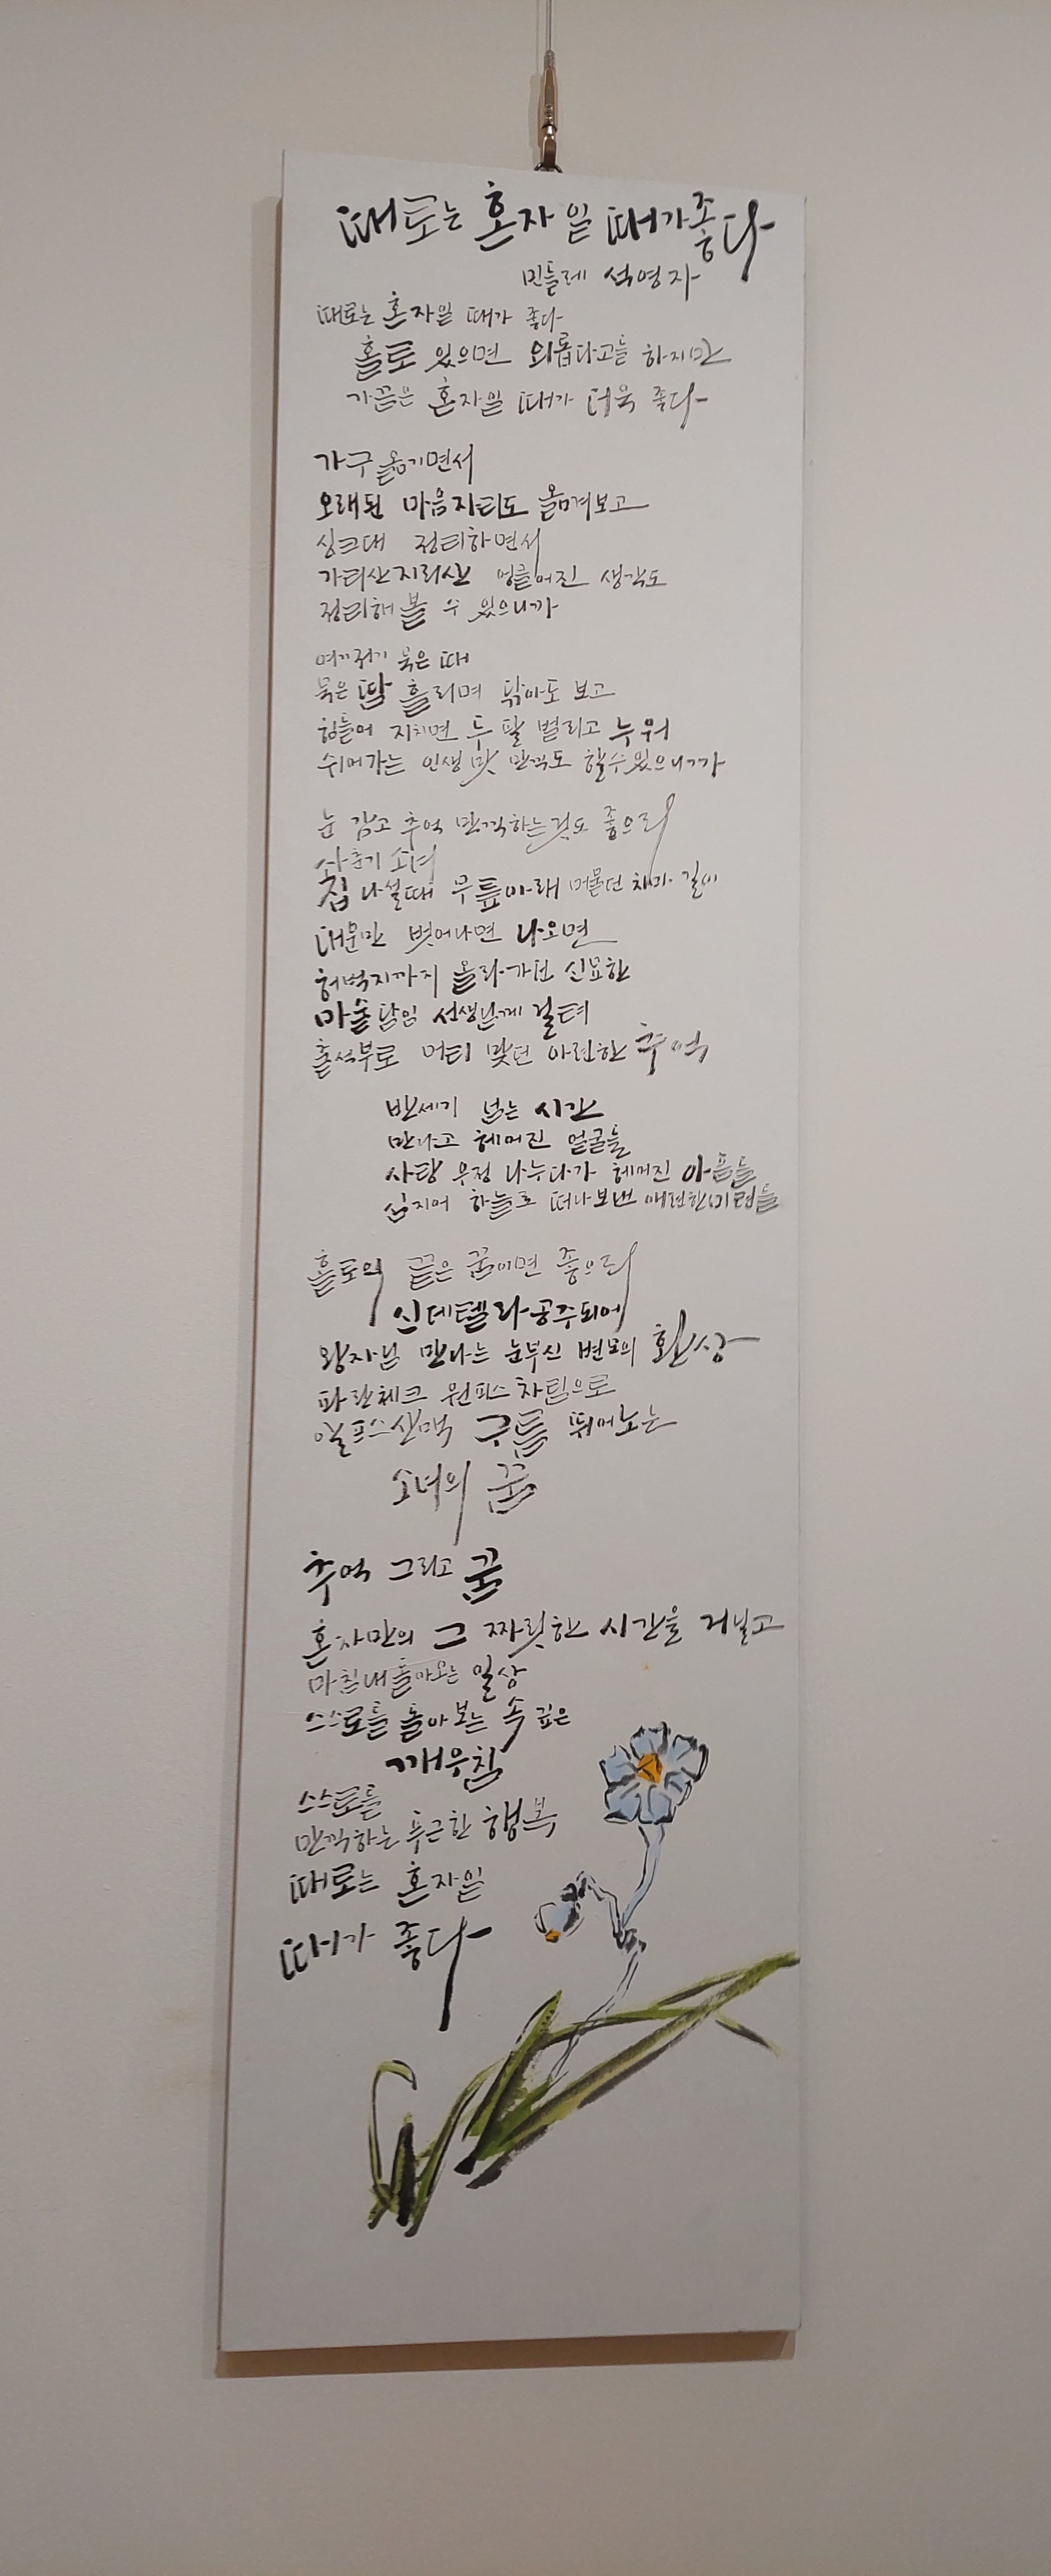 때로는 혼자 일 때가 좋다
민들레 석영자
때로는 혼자일 때가 좋다
홀로 있으면 외롭다고들 하지만
가끔은 혼자일 때가 더욱 좋다
가구 옮기면서
오래된 마음자리도 옮겨보고
싱크대 정리하면서
가리산지리산 엉클어진 생각도
정리해 볼 수 있으니까
여기저기 묵은 때
묵은 땀 흘리며 닦아도 보고
힘들어 지치면 두 팔 벌리고 누워
쉬어가는 인생 맛 만끽도 할수있으니까
눈 감고 추억 만끽하는것도 좋으리
사춘기 소녀
집 나설때 무릎아래 머물던 치마 길이
대문만 벗어나면 나오면
허벅지까지 올라가던 신묘한
마술 담임 선생님께 걸려
출석부로 머리 맞던 아련한 추억
반세기 넘는 시간
만나고 헤어진 얼굴들
사랑 우정 나누다가 헤어진 아픔들
심지어 하늘로 떠나보낸 애련한
홀로의 끝은 꿈이면 좋으리
신데렐라공주되어
왕자님 만나는 눈부신 변모의 환상
파란체크 원피스 차림으로
알프스산맥 구름 뛰어노는
소녀의 꿈
추억 그리고 꿈
혼자만의 그 짜릿한 시간을 거닐고
마침내 돌아오는 일상
스스로를 돌아보는 속 깊은
깨우침
스스로를
만끽하는 푸근한 행복
때로는 혼자일
때가 좋다